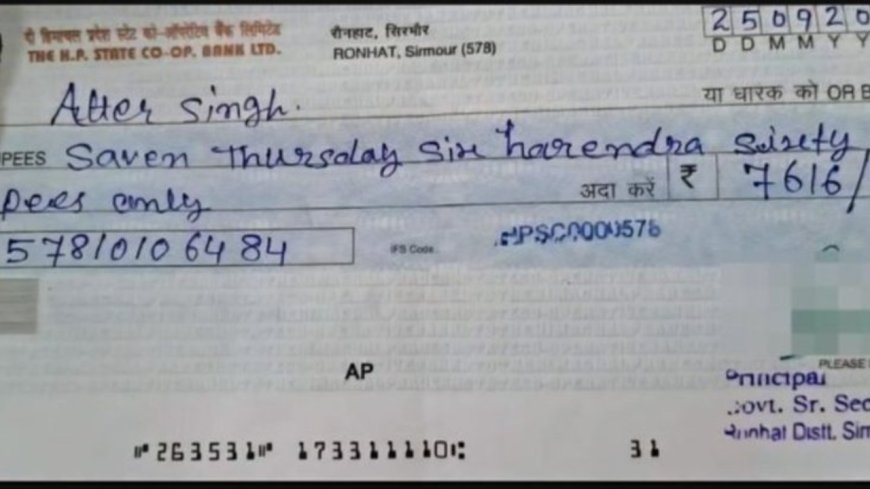 दी हिमाचल प्रदेश स्टेट को-ऑपरेटिव बैंक लिमिटेड
THE H.P. STATE CO-OP. BANK LTD.
रौनहाट, सिरमौर
RONHAT, Sirmour (578)
250920
D D M M Y Y
Atter Singh.
या धारक को OR B
PEES Saven Thursday Six harendra Sixty
अदा करें ₹ 7616/
pees only
57810106484
IFS Code HPSC0000578
AP
PLEASE
Principal
Govt. Sr. Sec
Ronhat Distt. Sir
⑈263531⑈ 173311110⑆ 31